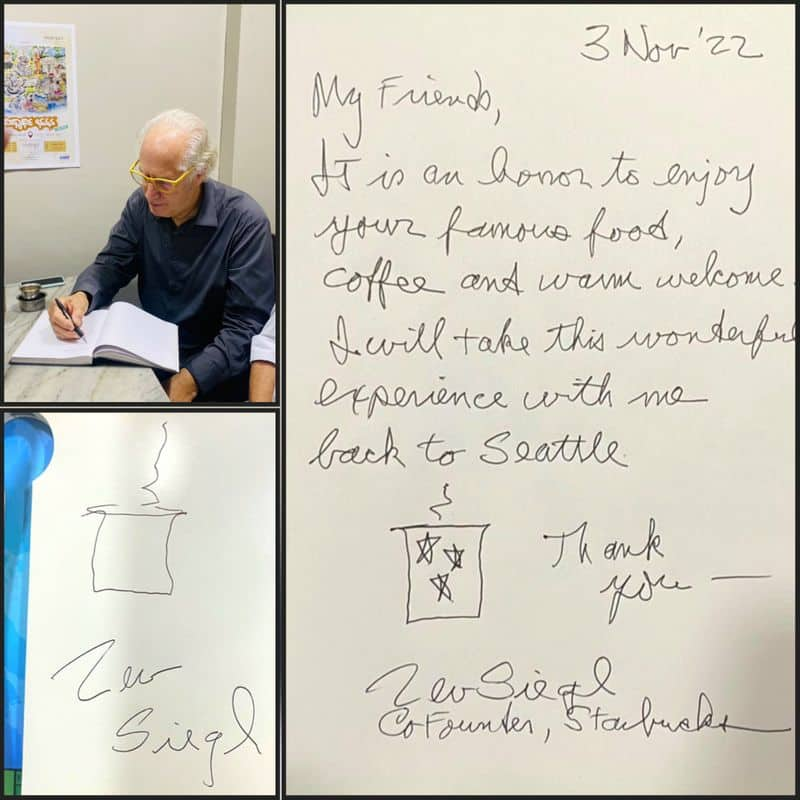 3 Nov '22
My Friends,
It is an honor to enjoy
your famous food,
coffee and warm welcome.
I will take this wonderful
experience with me
back to Seattle.
Thank
you —
Zev Siegl
CoFounder, Starbucks
Zev
Siegl